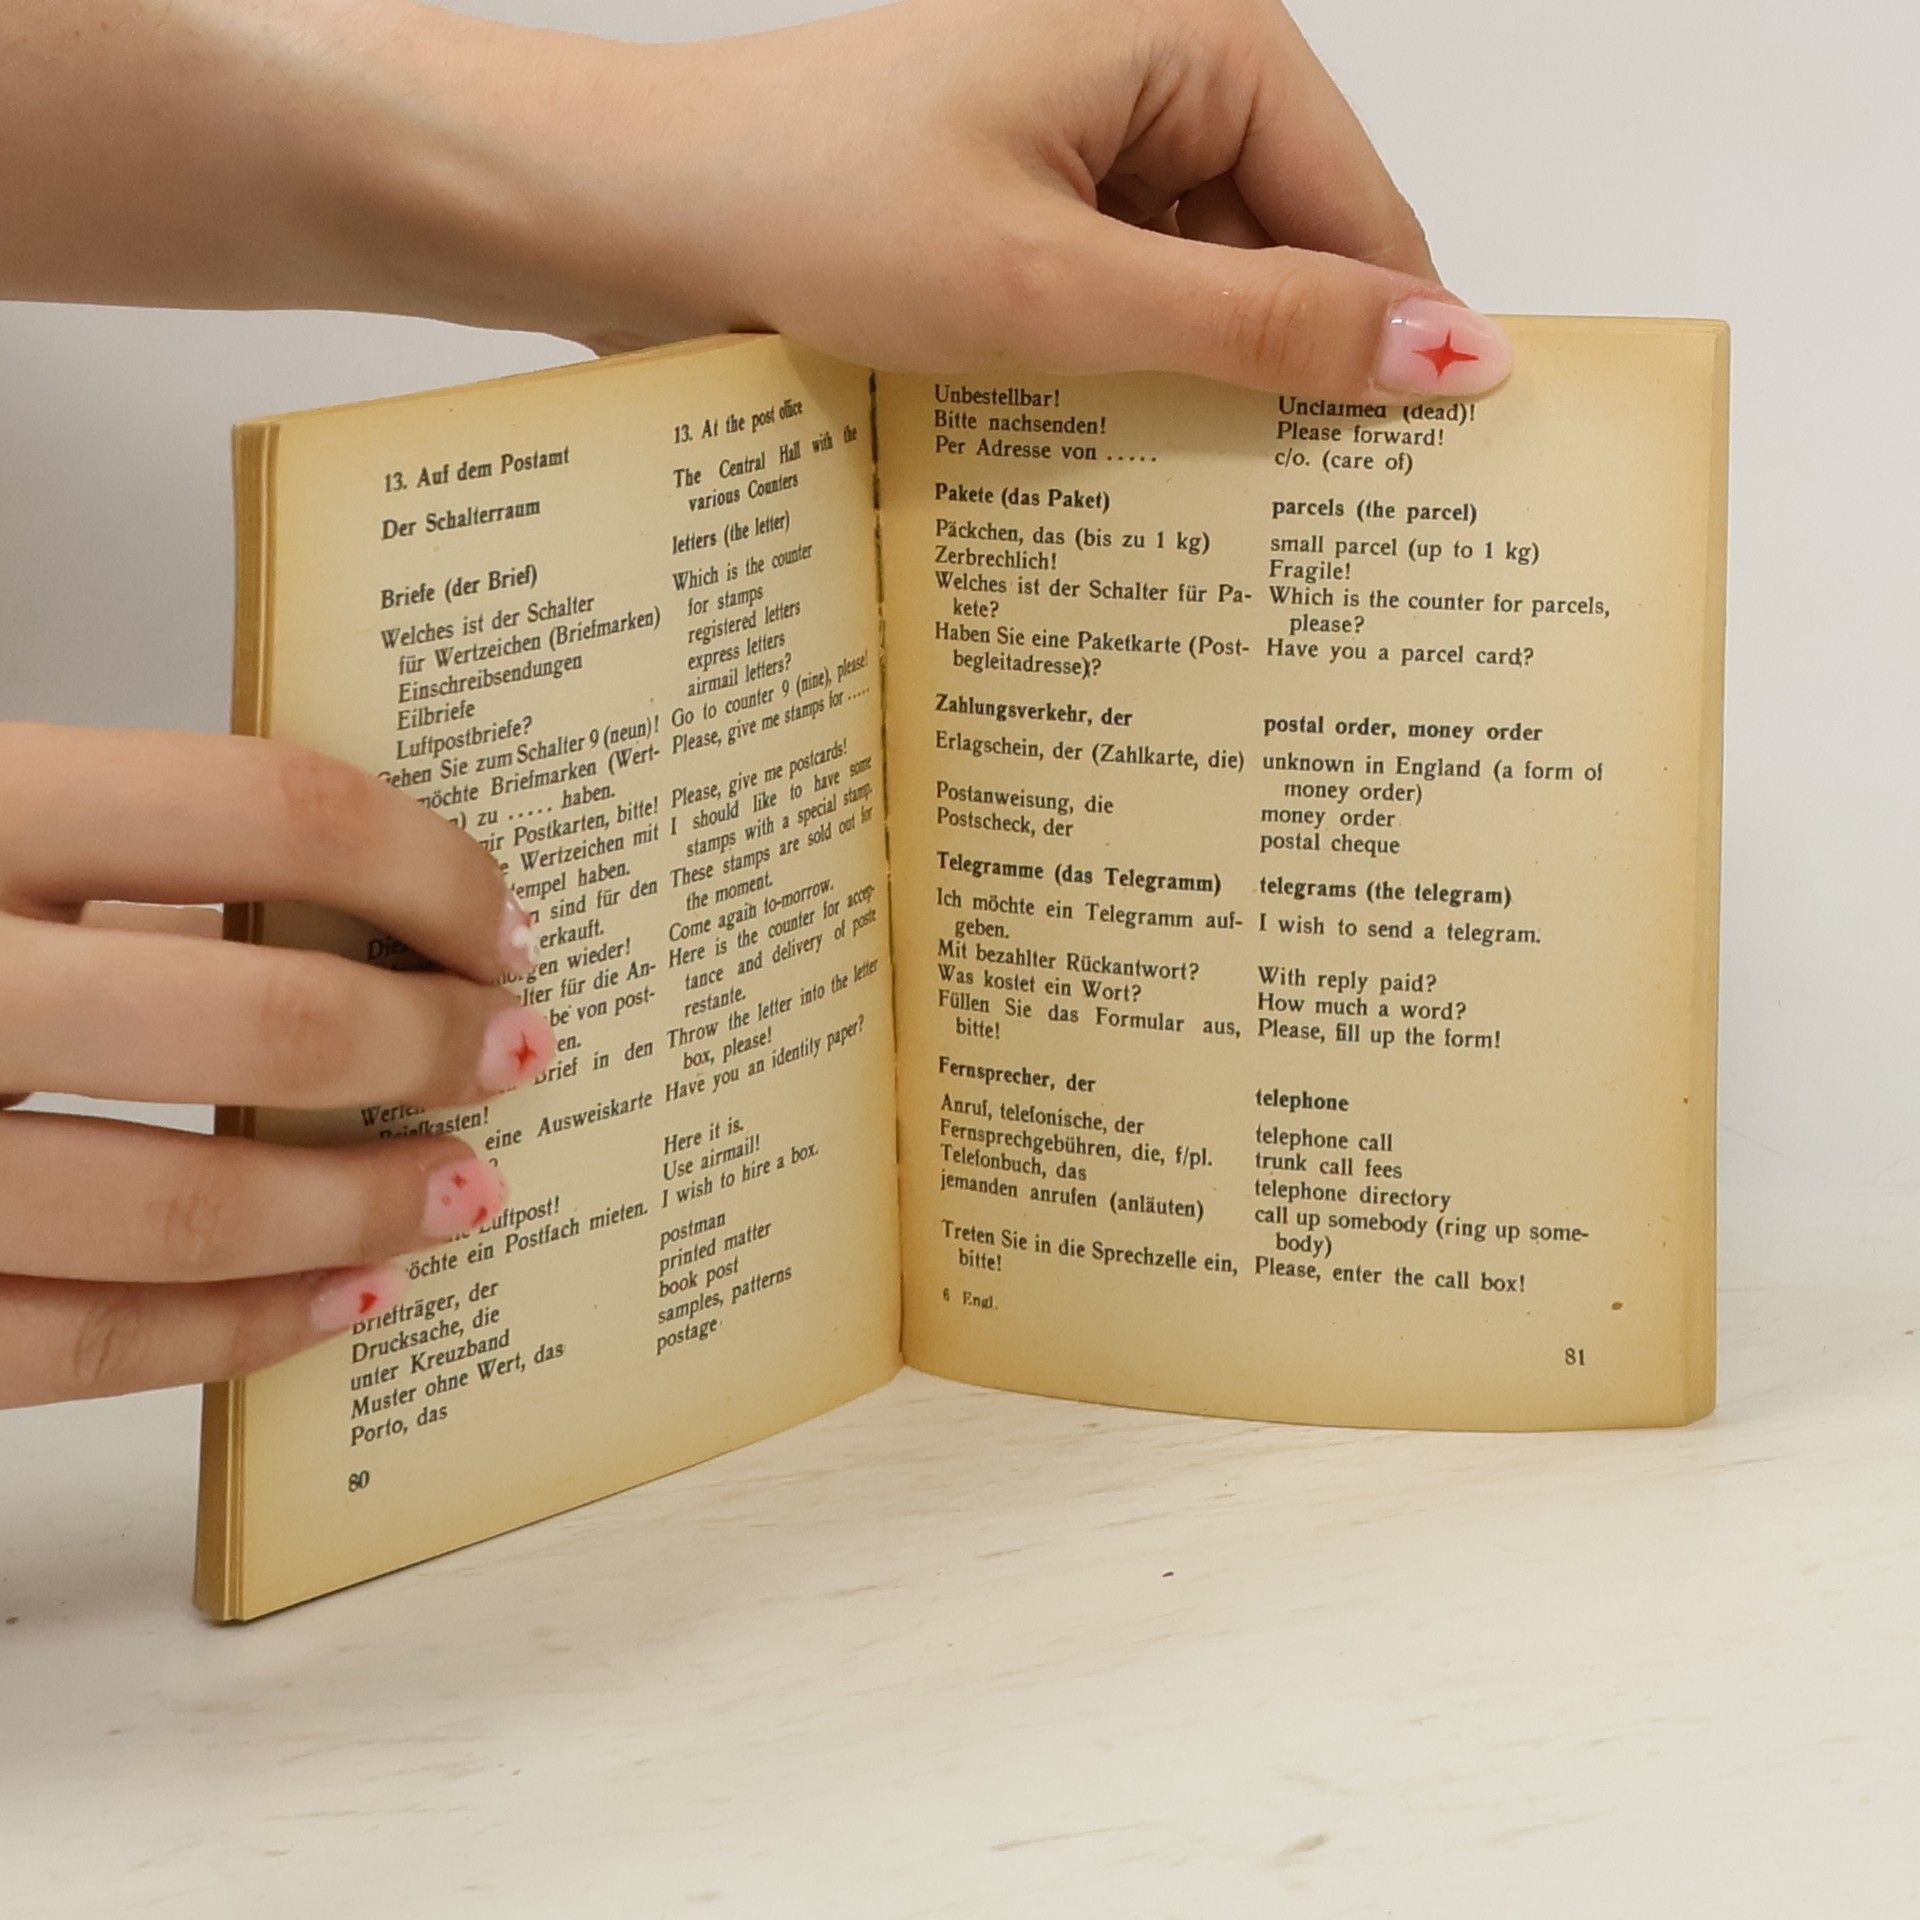 13. Auf dem Postamt
Der Schalterraum
Briefe (der Brief)
Welches ist der Schalter
für Wertzeichen (Briefmarken)
Einschreibsendungen
Eilbriefe
Luftpostbriefe?
Gehen Sie zum Schalter 9 (neun)!
möchte Briefmarken (Wert-
zu ..... haben.
mir Postkarten, bitte!
Wertzeichen mit
haben.
sind für den
wieder!
für die An-
von post-
Brief in den
eine Ausweiskarte
Luftpost!
ein Postfach mieten.
Briefträger, der
Drucksache, die
unter Kreuzband
Muster ohne Wert, das
Porto, das
80
13. At the post office
The Central Hall with the
various Counters
letters (the letter)
Which is the counter
for stamps
registered letters
express letters
airmail letters?
Go to counter 9 (nine), please!
Please, give me stamps for .....
Please, give me postcards!
I should like to have some
stamps with a special stamp.
These stamps are sold out for
the moment.
Come again to-morrow.
Here is the counter for accep-
tance and delivery of poste
restante.
Throw the letter into the letter
box, please!
Have you an identity paper?
Here it is.
Use airmail!
I wish to hire a box.
postman
printed matter
book post
samples, patterns
postage
Unbestellbar!
Bitte nachsenden!
Per Adresse von .....
Pakete (das Paket)
Päckchen, das (bis zu 1 kg)
Zerbrechlich!
Welches ist der Schalter für Pa-
kete?
Haben Sie eine Paketkarte (Post-
begleitadresse)?
Zahlungsverkehr, der
Erlagschein, der (Zahlkarte, die)
Postanweisung, die
Postscheck, der
Telegramme (das Telegramm)
Ich möchte ein Telegramm auf-
geben.
Mit bezahlter Rückantwort?
Was kostet ein Wort?
Füllen Sie das Formular aus,
bitte!
Fernsprecher, der
Anruf, telefonische, der
Fernsprechgebühren, die, f/pl.
Telefonbuch, das
jemanden anrufen (anläuten)
Treten Sie in die Sprechzelle ein,
bitte!
6 Engl.
Unclaimed (dead)!
Please forward!
c/o. (care of)
parcels (the parcel)
small parcel (up to 1 kg)
Fragile!
Which is the counter for parcels,
please?
Have you a parcel card?
postal order, money order
unknown in England (a form of
money order)
money order
postal cheque
telegrams (the telegram)
I wish to send a telegram.
With reply paid?
How much a word?
Please, fill up the form!
telephone
telephone call
trunk call fees
telephone directory
call up somebody (ring up some-
body)
Please, enter the call box!
81